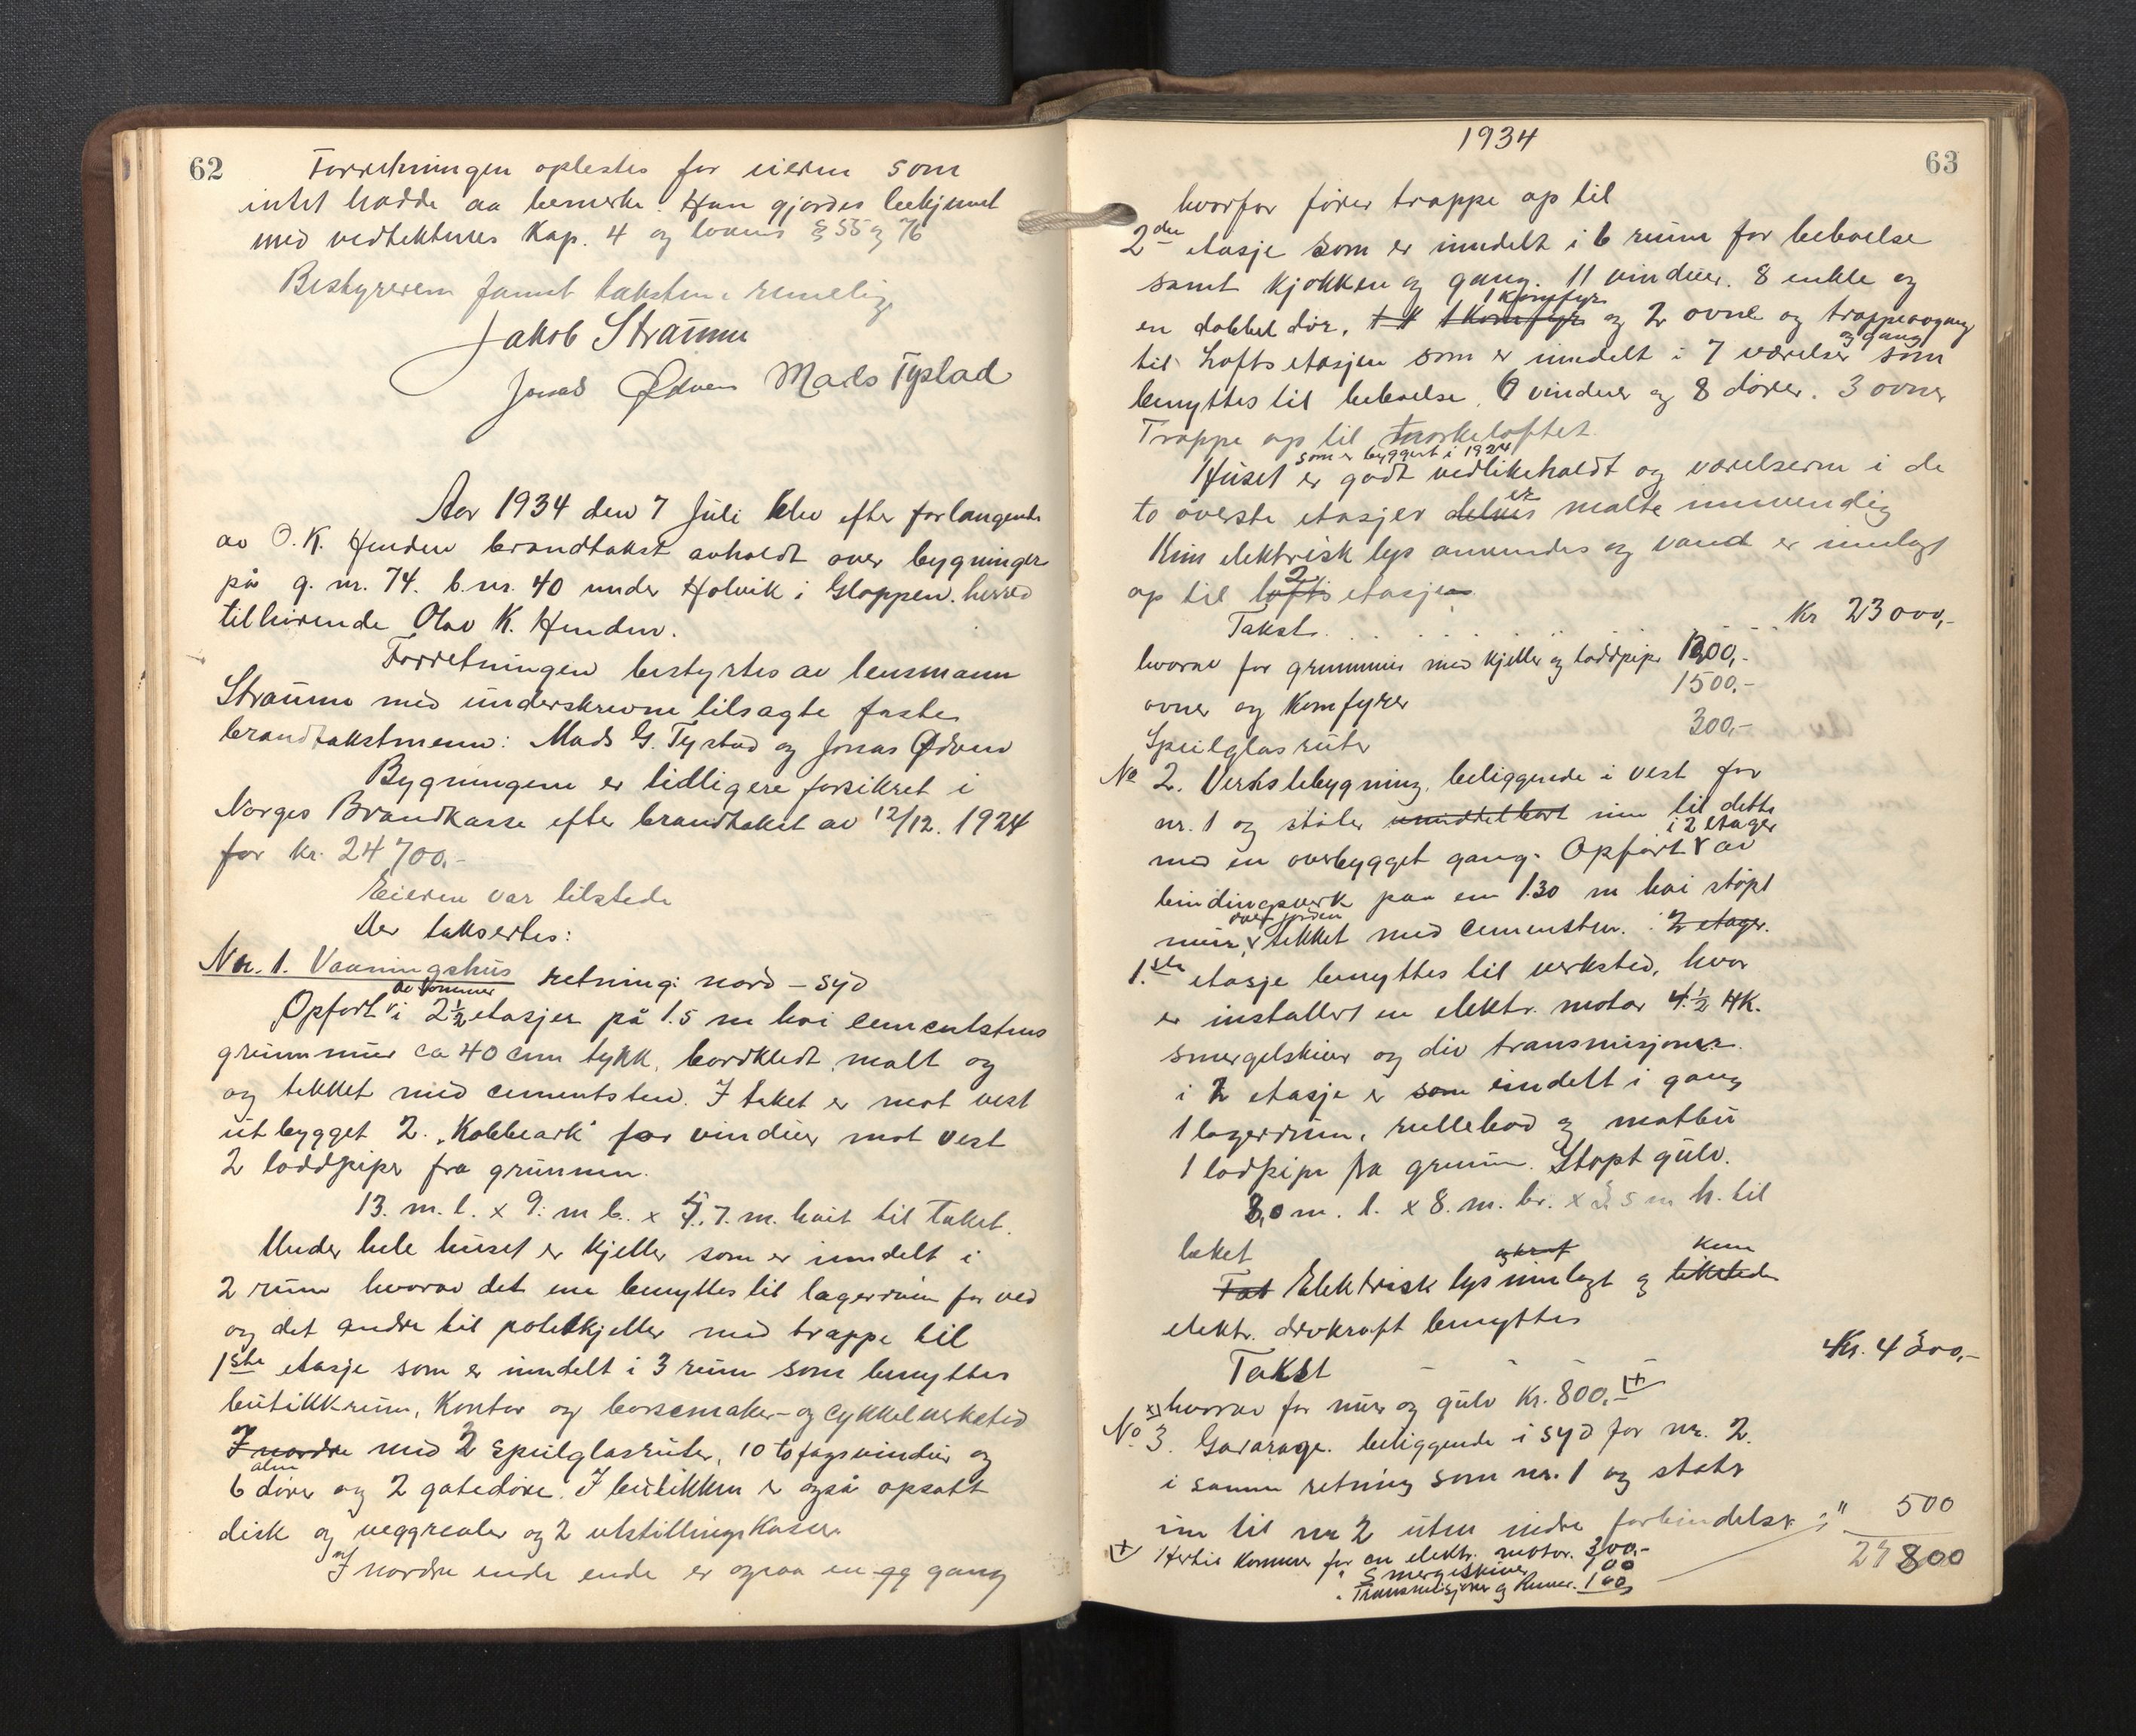 62
Forretningen oplestes for eieren som
intet hadde aa bemerke. Han gjordes bekjennt
med vedtekternes Kap. 4 og lovens § 55 og 76
Bestyreren fannt taksten rimelig
Jakob Straume
Jonas Ødven Mads Tystad
Aar 1934 den 7 Juli blev efter forlangende
av O. K. Henden brandtakst avholdt over bygninger
på g. nr. 74. b. nr. 40 under Holvik i Gloppen herred
tilhørende Olav K. Henden.
Forretningen bestyrtes av lensmann
Straume med underskrevne tilsagte faste
brandtakstmenn: Mads G. Tystad og Jonas Ødven
Bygningene er tidligere forsikret i
Norges Brandkasse efter brandtakst av 12/12. 1924
for kr. 24700,-
Eieren var tilstede
Der taksertes:
Nr. 1. Vaaningshus retning: nord – syd
av tømmer
Opført i 2½ etasjer på 1.5 m høi cementstens
grunnmur ca 40 cm tykk, bordkledt, malt og
og tekket med cementsten. I taket er mot vest
utbygget 2. "Kobbeark" for vinduer mot vest
2 loddpiper fra grunnen.
13. m. l. x 9. m b. x 7. m. høit til taket.
Under hele huset er kjeller som er inndelt i
2 rum hvorav det ene benyttes til lagerrum for ved
og det andre til potetkjeller med trappe til
1ste etasje som er inndelt i 3 rum som benyttes
butikkrum, Kontor og børsemaker- og cykkelverksted
I nordre med 2 speilglasruter, 10 to fags vinduer og
alm
6 dører og 2 gatedøre. I butikken er også opsatt
disk og veggreoler og 2 utstillingskasser.
I nordre ende ende er ogsaa en gg gang
1934
63
hvorfor fører trappe op til
2den etasje som er inndelt i 6 rum for beboelse
samt kjøkken og gang. 11 vinduer. 8 enkle og
1 komfyr
en dobbel dør, 1 komfyr og 2 ovne og trappeopgang
og gang
til Loftsetasjen som er inndelt i 7 værelser som
benyttes til beboelse. 6 vinduer og 8 dører. 3 ovner
Trappe op til tørkeloftet.
som er bygget i 1924
Huset er godt vedlikeholdt og værelserne i de
er
to øverste etasjer delvis malte innvendig
Kun elektrisk lys anvendes og vand er innlagt
2
op til lofts etasjen
Takst. . . . . . . . Kr 23000,-
hvorav for grunnmur med kjeller og loddpipe 1200,-
ovner og Komfyrer 1500,-
Speilglasruter 300,-
No 2. Verkstebygning, beliggende i vest for
nr. 1 og støter umiddelbart inn til dette
i 2 etager
med en overbygget gang. Opført av
bindingsverk paa en 1.30 m høi støpt
over jorden
mur, tekket med cementsten. 2 etager.
1.ste etasje benyttes til verksted, hvor
er installert en elektr. motor 4.½ HK.
smergelskiver og div transmisjoner.
i 2 etasje er som inndelt i gang
1 lagerrum, rullebod og matbu
1 lodpipe fra grunn. Støpt gulv.
8,0 m. l. x 8. m. br. x 5 m h. til
taket
og kraf kun
Tat Elektrisk lys innlagt og tilkstede
elektr. drvkraft benyttes
Takst - - - - Kr. 4300,-
hvorav for mur og gulv Kr. 800,-
No. 3. Gararage. beliggende i syd for nr. 2.
i samme retning som nr. 1 og støtr
inn til nr 2 uten indre forbindelse : " 500
27800
Hertil kommer for en elektr. motor. 300,-
" Smergelskiver 100
" Transmisjoner og Remer. 100,